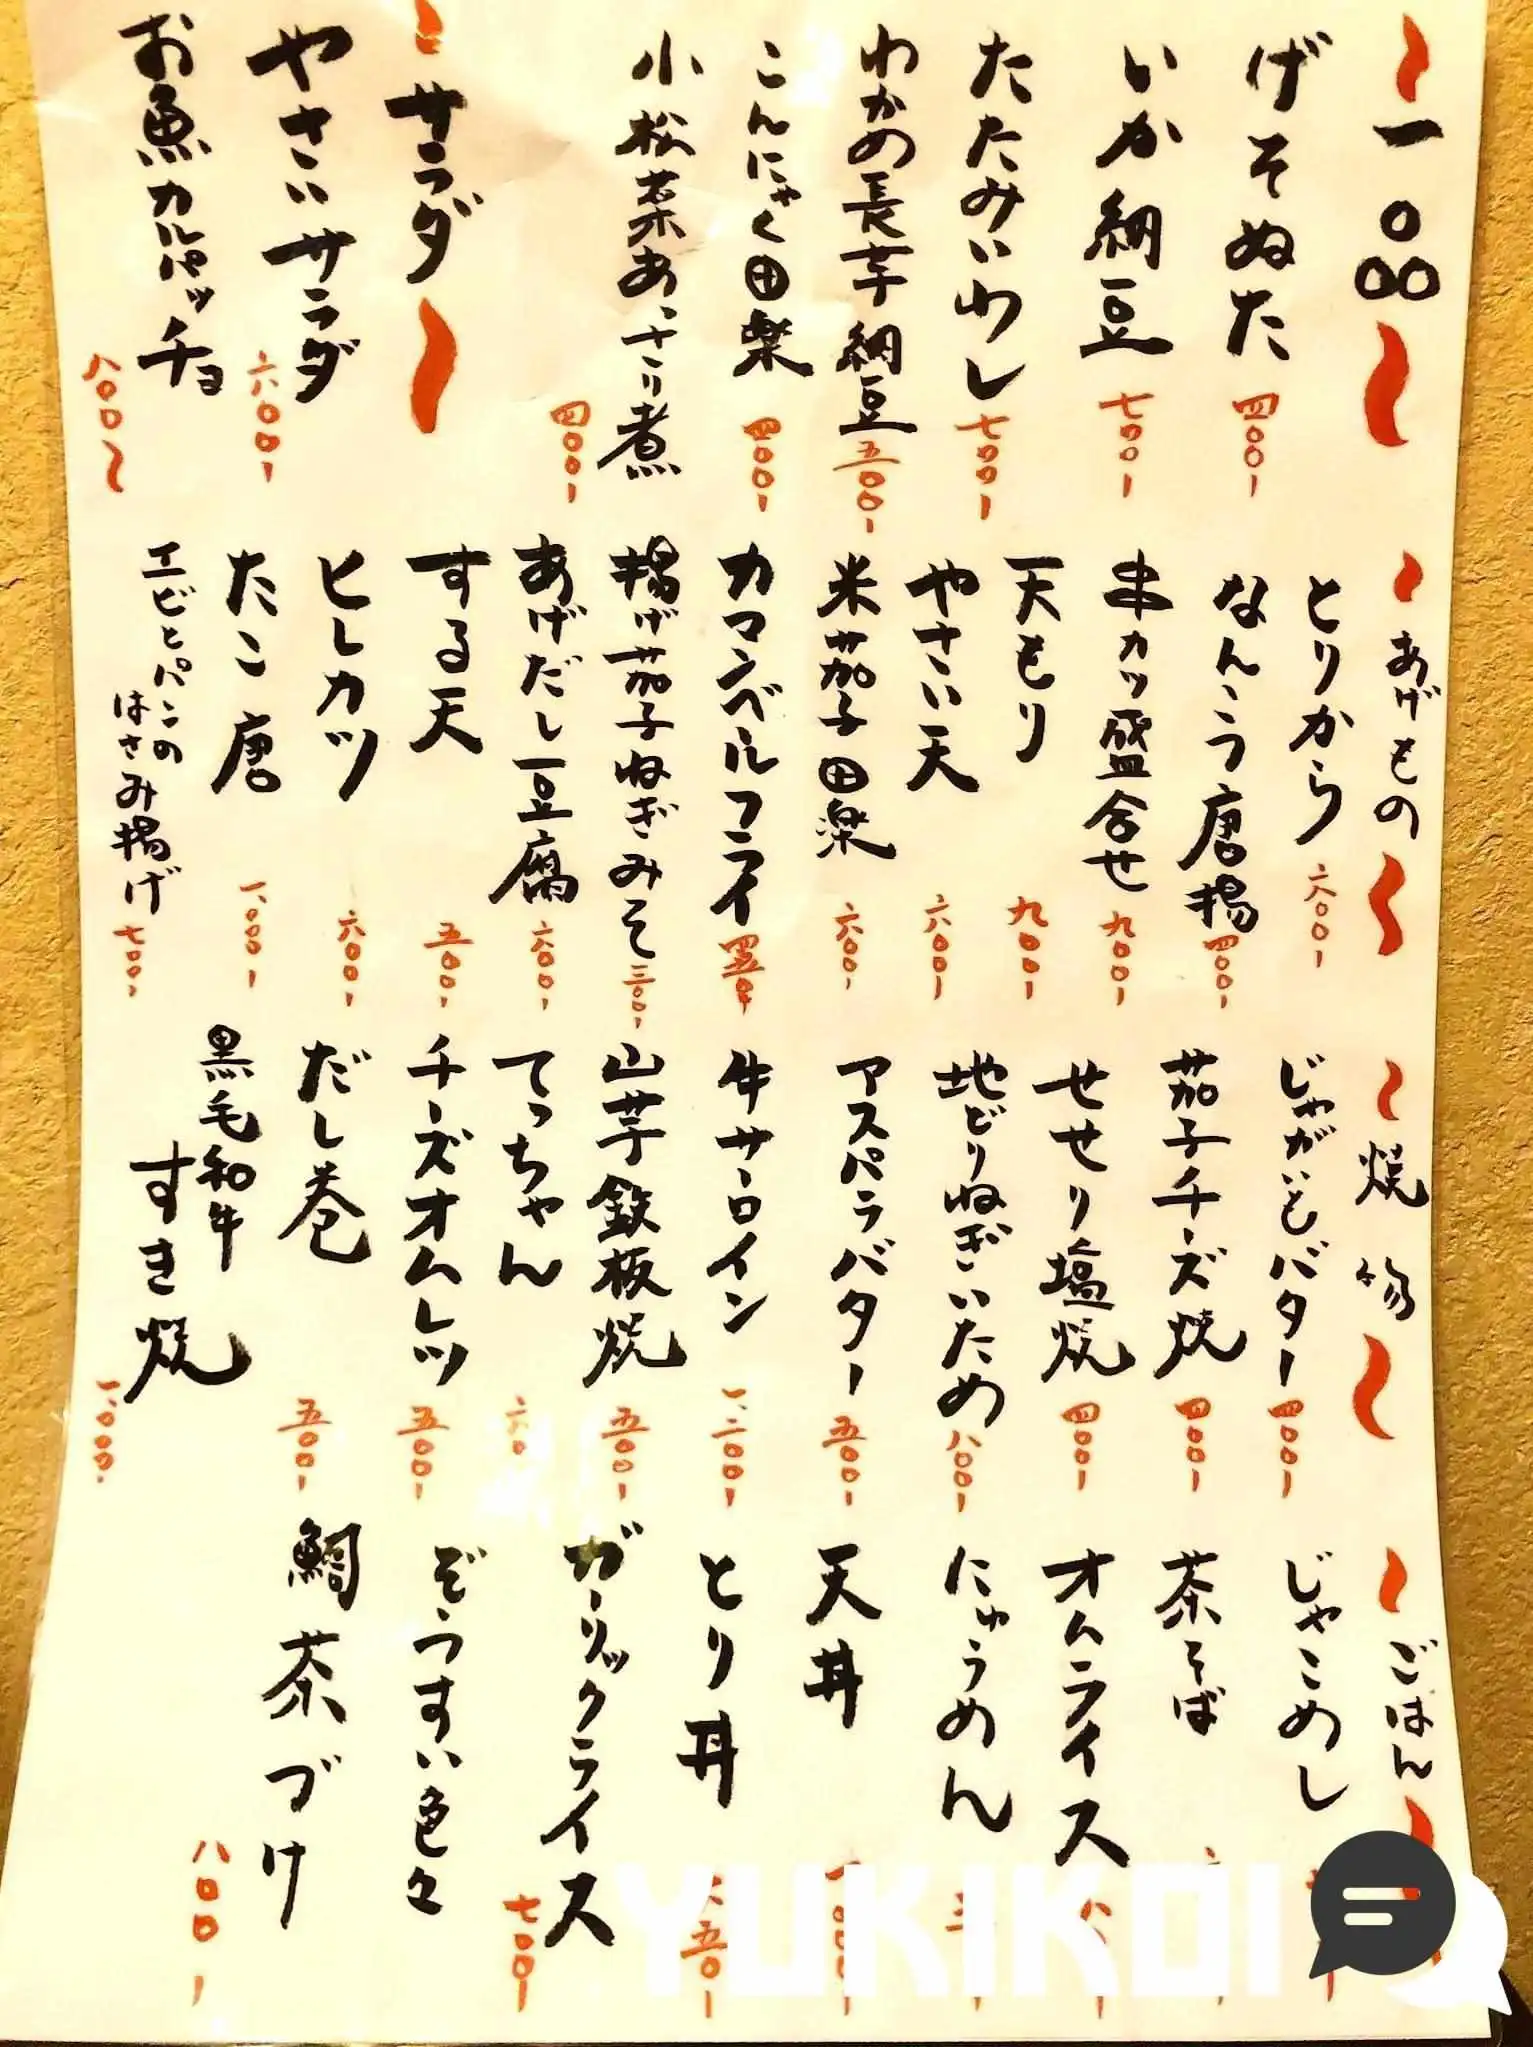 一品
げそぬた 四〇〇
いか納豆 七〇〇
たたみいわし 七〇〇
わかめ長芋納豆 五〇〇
こんにゃく田楽 四〇〇
小松菜あっさり煮 四〇〇
サラダ
やさいサラダ 六〇〇
お魚カルパッチョ 八〇〇〜
あげもの
とりから 六〇〇
なんこつ唐揚 四〇〇
串カツ盛合せ 九〇〇
天もり 九〇〇
やさい天 六〇〇
米茄子田楽 六〇〇
カマンベールフライ 四五〇
揚げ茄子ねぎみそ 三〇〇
あげだし豆腐 六〇〇
する天 五〇〇
ヒレカツ 六〇〇
たこ唐 一、〇〇〇
エビとパンの
はさみ揚げ 七〇〇
焼物
じゃがいもバター 四〇〇
茄子チーズ焼 四〇〇
せせり塩焼 四〇〇
地どりねぎいため 八〇〇
アスパラバター 五〇〇
牛サーロイン 一、二〇〇
山芋鉄板焼 五〇〇
てっちゃん
チーズオムレツ 五〇〇
だし巻 五〇〇
黒毛和牛
すき焼 一、〇〇〇
ごはん
じゃこめし
茶そば
オムライス
にゅうめん
天丼
とり丼
ガーリックライス 七〇〇
ぞうすい色々
鯛茶づけ 八〇〇
YUKIKOI